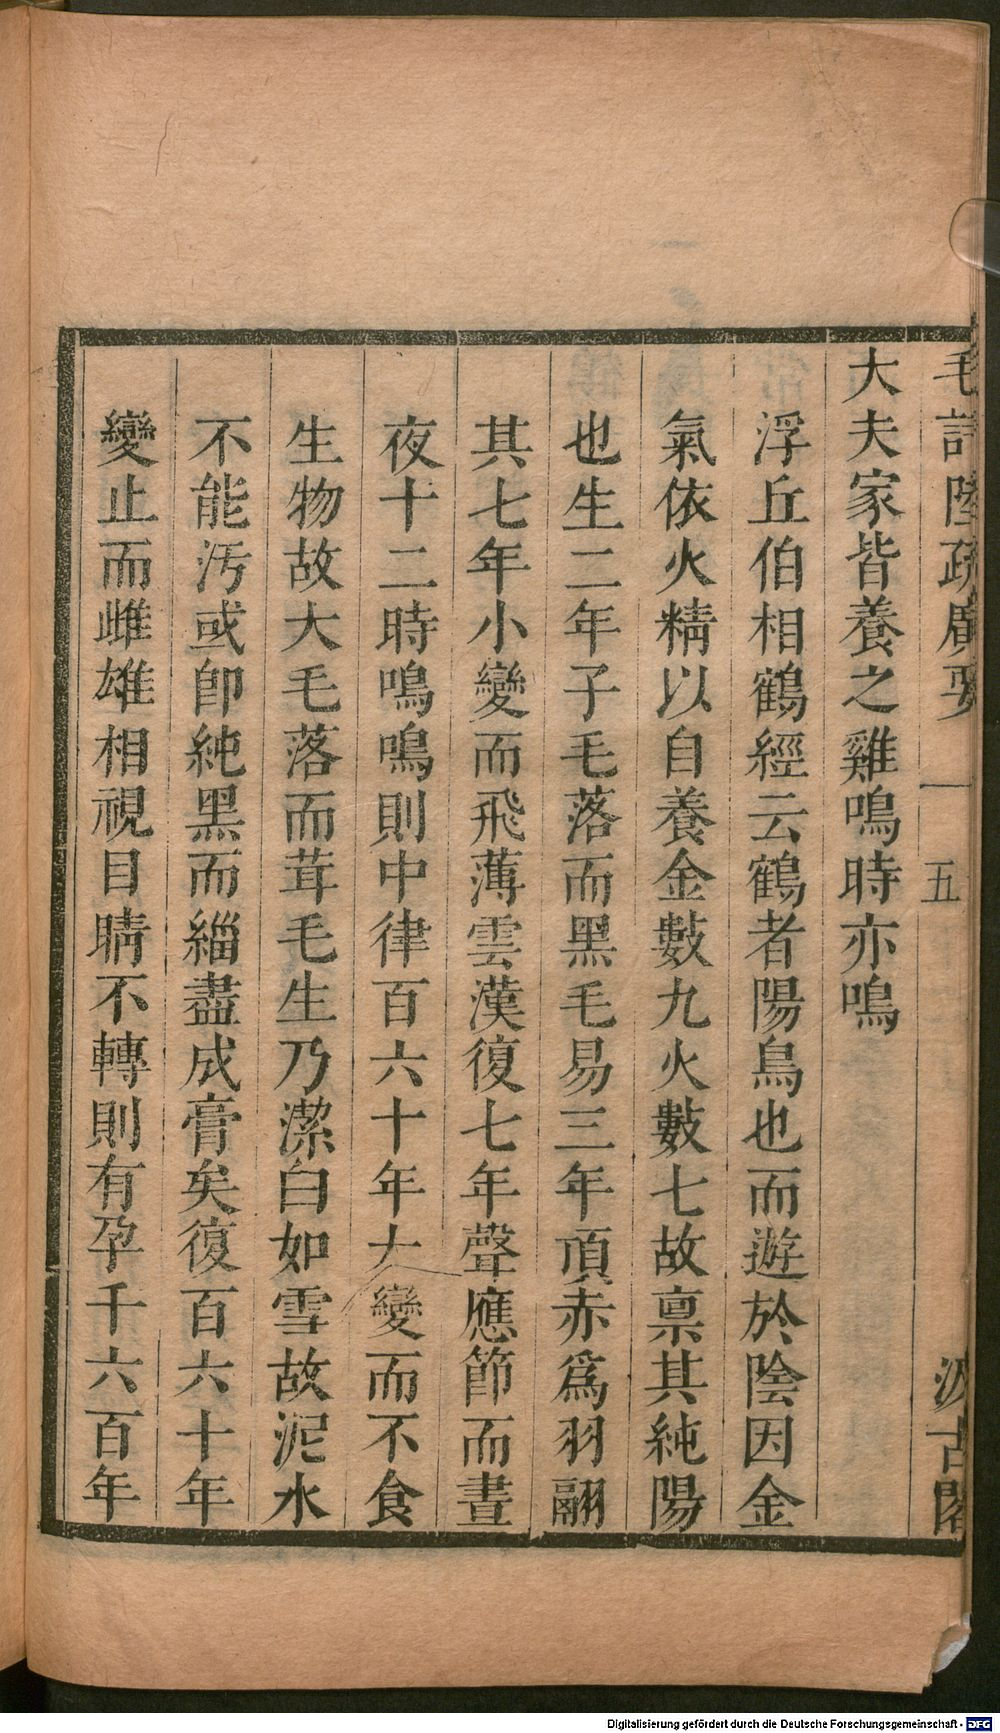 毛詩陸疏廣要
五
汲古閣
大夫家皆養之雞鳴時亦鳴
浮丘伯相鶴經云鶴者陽鳥也而遊於陰因金
氣依火精以自養金數九火數七故稟其純陽
也生二年子毛落而黑毛易三年頂赤為羽翮
其七年小變而飛薄雲漢復七年聲應節而晝
夜十二時鳴鳴則中律百六十年大變而不食
生物故大毛落而茸毛生乃潔白如雪故泥水
不能汚或卽純黑而緇盡成膏矣復百六十年
變止而雌雄相視目睛不轉則有孕千六百年
Digitalisierung gefördert durch die Deutsche Forschungsgemeinschaft - DFG